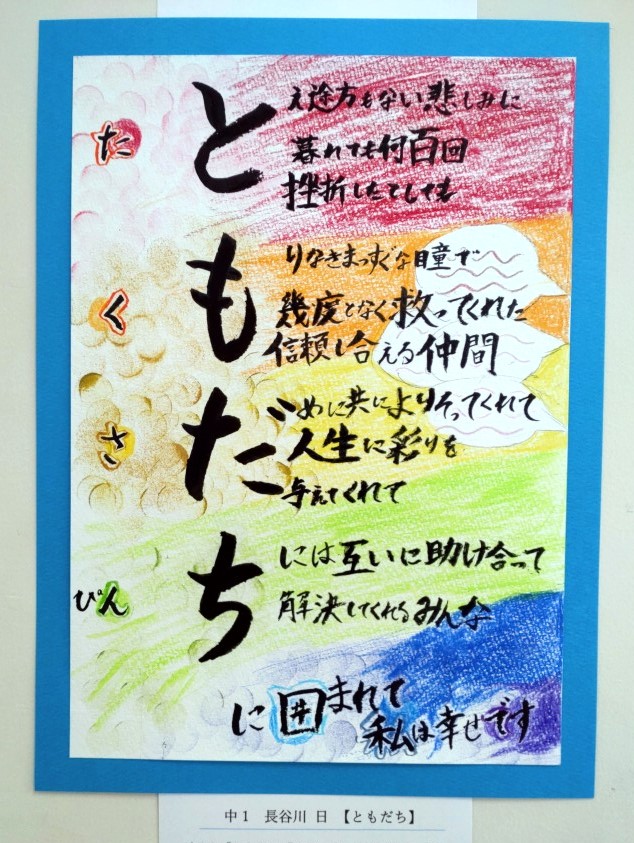 たとえ途方もない悲しみに
暮れても何百回
挫折したとしても
くもりなきまっすぐな瞳で
幾度となく救ってくれた
信頼し合える仲間
さだめに共によりそってくれて
人生に彩りを
与えてくれて
ぴんちには互いに助け合って
解決してくれるみんな
に囲まれて
私は幸せです
中1 長谷川 日 【ともだち】